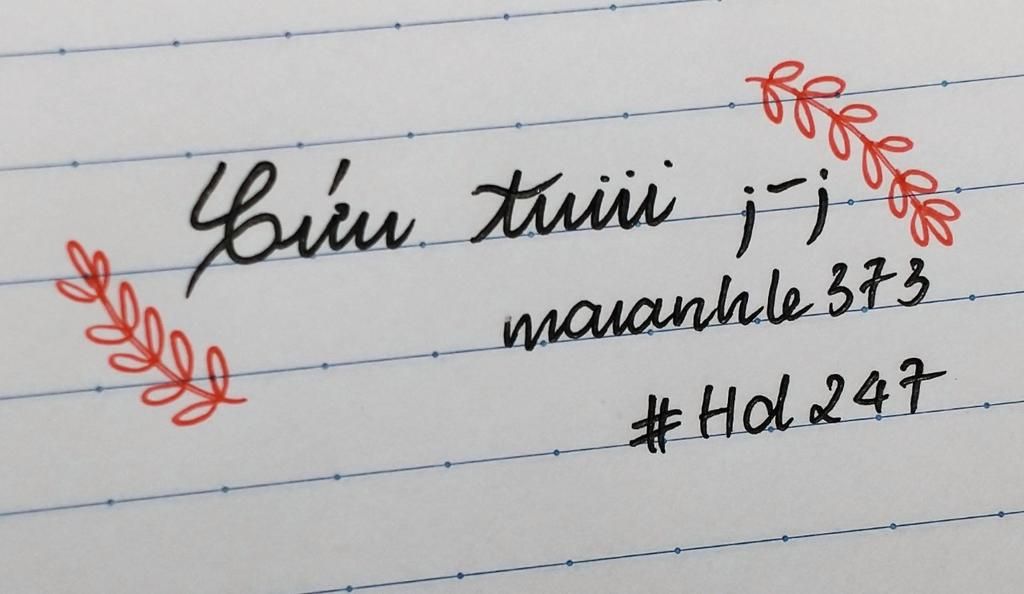 Cíu tuiii ;-;
maianhle373
#Hd247